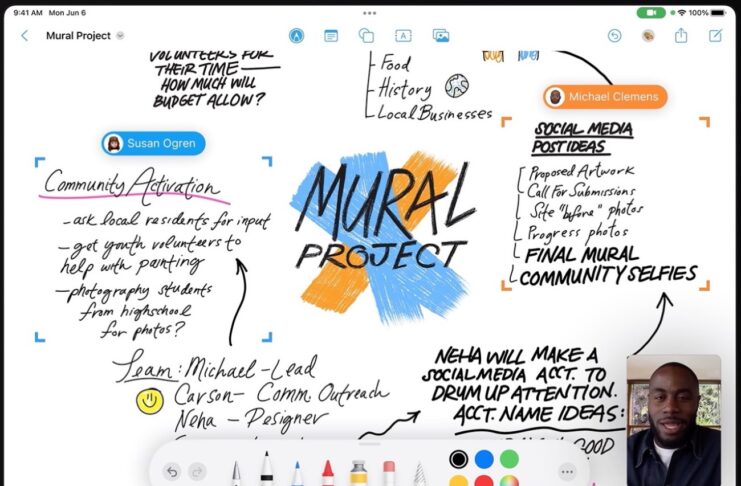 9:41 AM Mon Jun 6
100%
Mural Project
VOLUNTEERS FOR
THEIR TIME —
HOW MUCH WILL
BUDGET ALLOW?
Food
History
Local Businesses
Michael Clemens
Susan Ogren
Community Activation
- ask local residents for input
- get youth volunteers to
help with painting
- photography students
from highschool
for photos?
MURAL
PROJECT
SOCIAL MEDIA
POST IDEAS
Proposed Artwork
Call For Submissions
Site "before" photos
Progress photos
FINAL MURAL
COMMUNITY SELFIES
Team: Michael - Lead
Carson - Comm Outreach
Neha - Designer
NEHA WILL MAKE A
SOCIAL MEDIA ACCT. TO
DRUM UP ATTENTION.
ACCT. NAME IDEAS:
GOOD